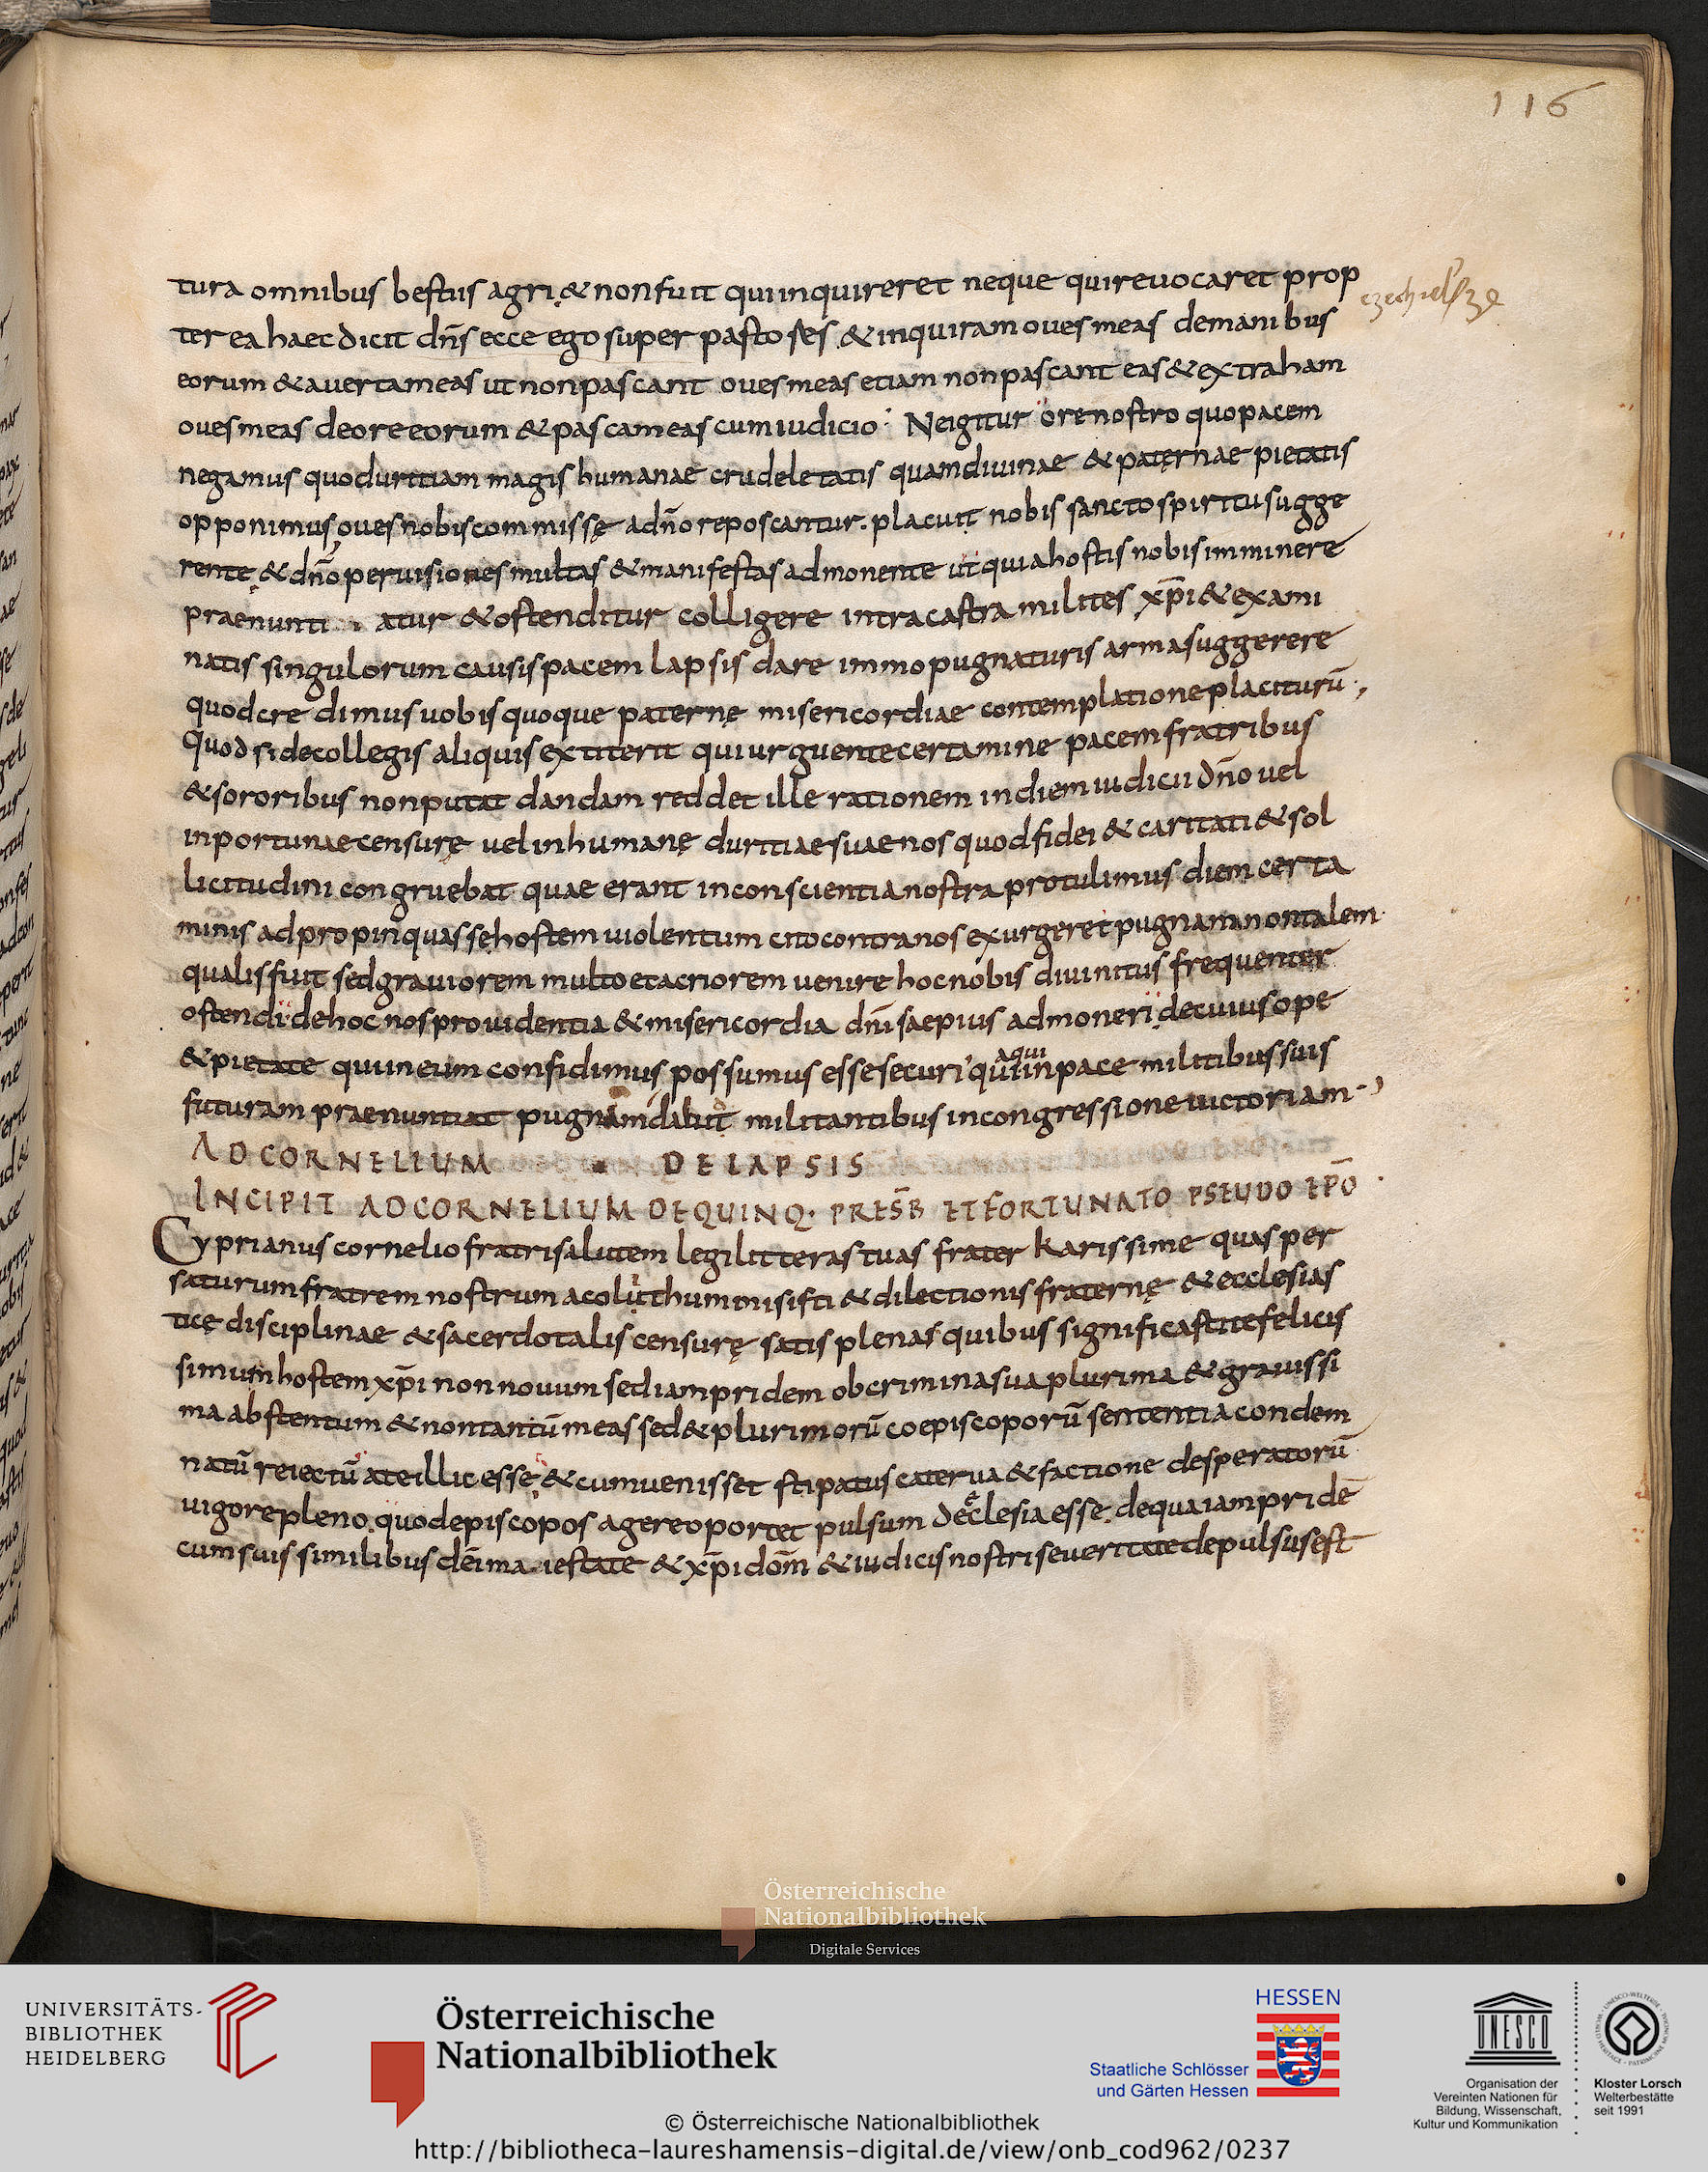 116
tura omnibus bestiis agri & non fuit qui inquireret neque qui reuocaret prop
ezechiel
ter ea haec dicit dn̄s ecce ego super pastores & inquiram oues meas de manibus
eorum & auertam eas ut non pascant oues meas etiam non pascant eas & extraham
oues meas de ore eorum & pascam eas cum iudicio Ne igitur ore nostro quo pacem
negamus quo duritiam magis humanae crudeletatis quam diuinae & paternae pietatis
opponimus oues nobis commissę ad dn̄o reposcantur. placuit nobis sancto spiritu sugge
rente & dn̄o per uisiones multas & manifestas admonente ut quia hostis nobis imminere
praenunti atur & ostenditur colligere intra castra milites xp̄i & exami
natis singulorum causis pacem lapsis dare immo pugnaturis arma suggerere
quod credimus uobis quoque paternę misericordiae contemplatione placiturū
quod si de collegis aliquis extiterit qui urguente certamine pacem fratribus
& sororibus non putat dandam reddet ille rationem in diem iudicii dn̄o uel
inportunae censurę uel inhumanę duritiae suae nos quod fidei & caritati & sol
licitudini congruebat quae erant in conscientia nostra protulimus diem certa
minis adpropinquasse hostem uiolentum cito contra nos exurgeret pugnam non talem
qualis fuit sed grauiorem multo et acriorem uenire hoc nobis diuinitus frequenter
ostendi de hoc nos prouidentia & misericordia dn̄i saepius admoneri de cuius ope
& pietate qui in eum confidimus possumus esse securi qui in pace militibus suis
futuram praenuntiat pugnam dabit militantibus in congressione uictoriam
AD CORNELIUM DE LAPSIS
INCIPIT AD CORNELIUM DE QUINQ· PRESB̄ ET FORTUNATO PSEUDO EPŌ
Cyprianus cornelio fratri salutem legi litteras tuas frater karissime quas per
saturum fratrem nostrum acoluthum misisti & dilectionis fraternę & ecclesias
ticę disciplinae & sacerdotalis censurę satis plenas quibus significasti te felicis
simum hostem xp̄i non nouum sed iam pridem ob crimina sua plurima & grauissi
ma abstentum & non tantū mea s sed & plurimorū coepiscoporū sententia condem
natū reiectū a te illic esse & cum uenisset stipatus caterua & factione desperatorū
uigore pleno quod episcopos agere oportet pulsum de eclesia esse. de qua iam pridē
cum suis similibus dēi maiestate & xp̄i dom̄ & iudicis nostri seueritate depulsus est
Österreichische
Nationalbibliothek
Digitale Services
UNIVERSITÄTS-
BIBLIOTHEK
HEIDELBERG
Österreichische
Nationalbibliothek
HESSEN
Staatliche Schlösser
und Gärten Hessen
UNESCO
Organisation der
Vereinten Nationen für
Bildung, Wissenschaft,
Kultur und Kommunikation
Kloster Lorsch
Welterbestätte
seit 1991
© Österreichische Nationalbibliothek
http://bibliotheca-laureshamensis-digital.de/view/onb_cod962/0237